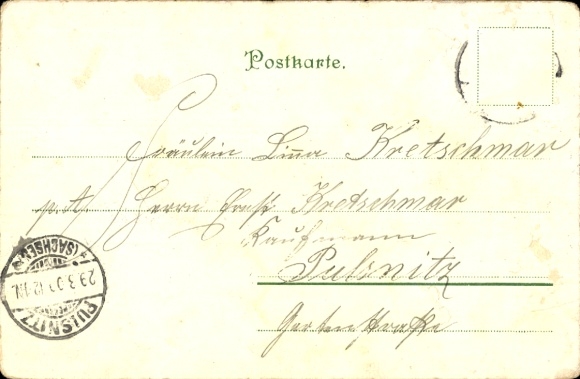 Postkarte.
Fräulein Lina Kretschmar
p. A. Herrn Ernst Kretschmar
Kaufmann
Pulsnitz
Gartenstraße
PULSNITZ
(SACHSEN)